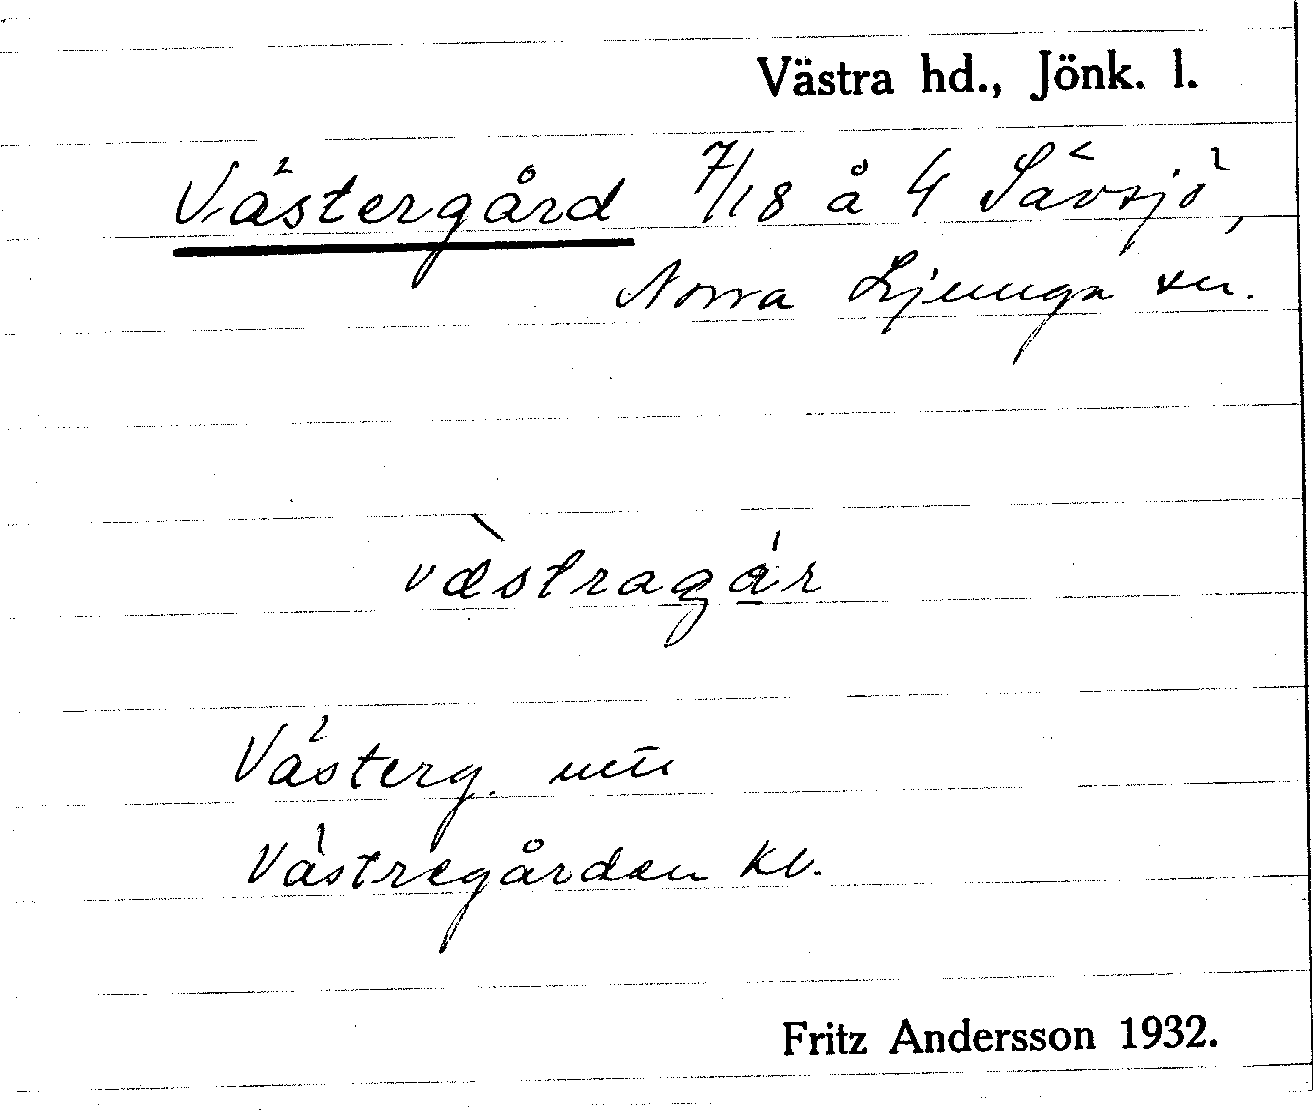 Västra hd., Jönk. l.
Västergård 7/18 å 4 Sävsjö,
Norra Ljunga sn.
væstragár
Västerg.
Västregården kl.
Fritz Andersson 1932.